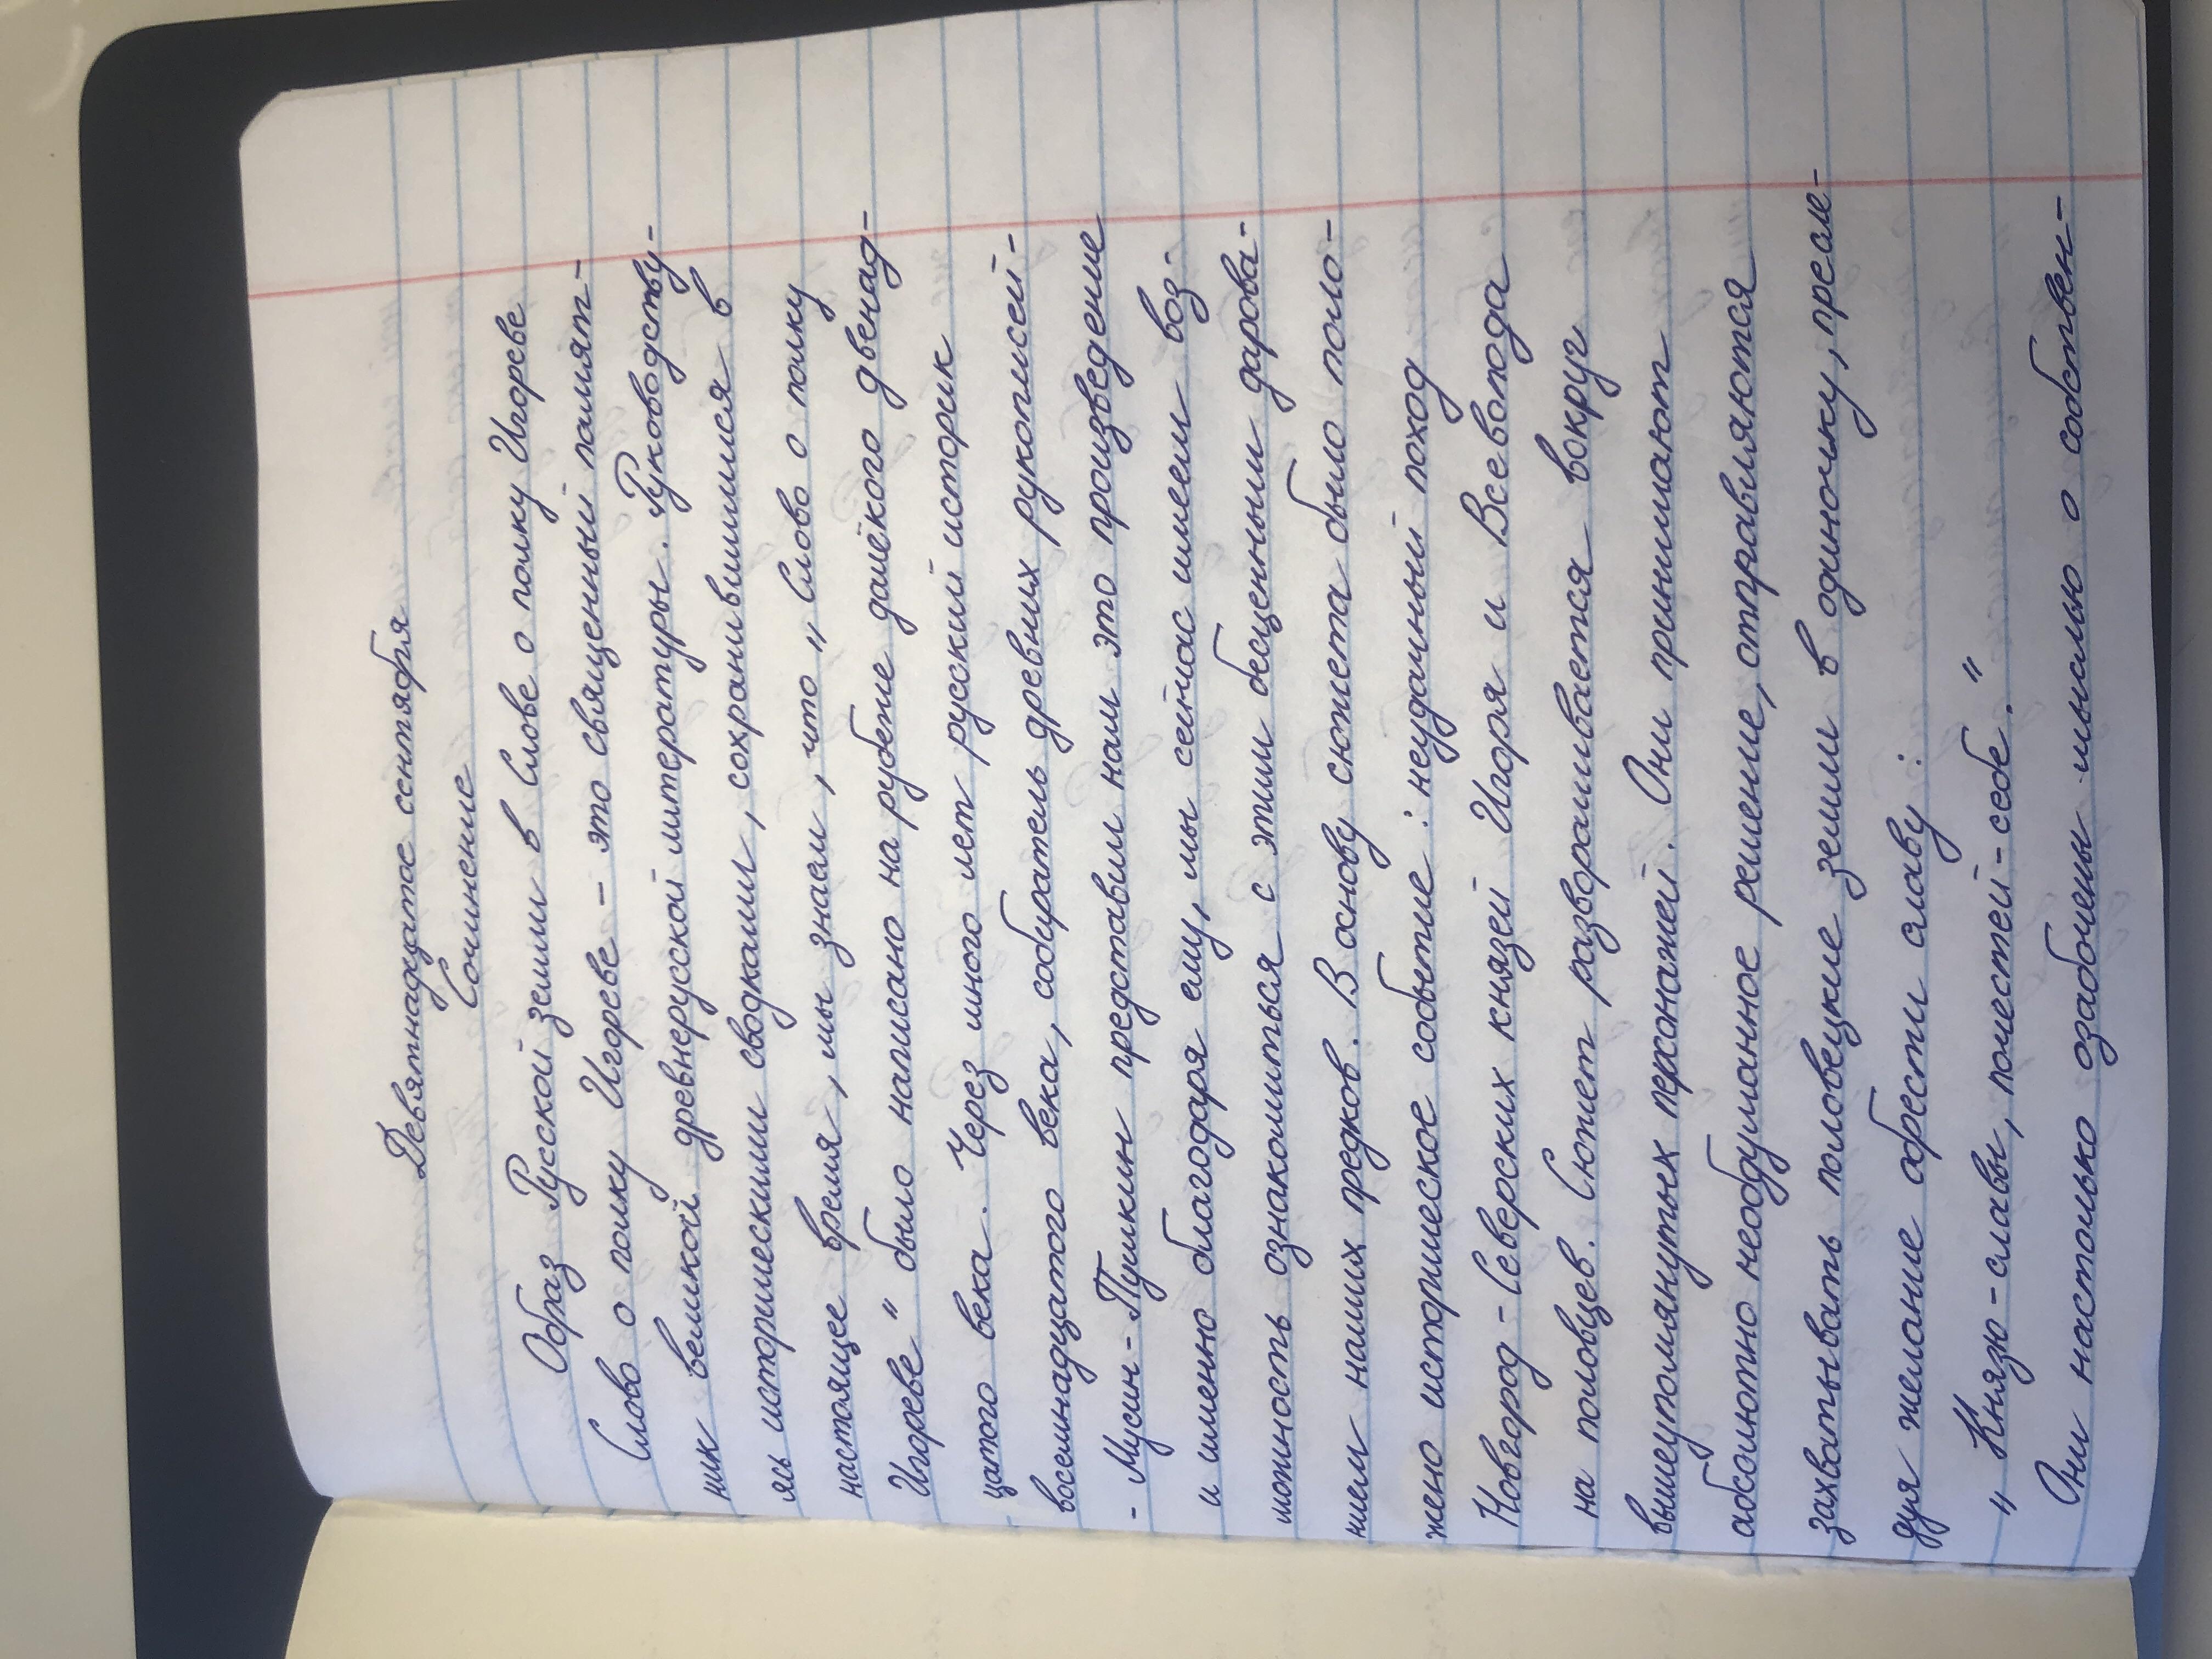 Девятнадцатое сентября
Сочинение
Образ Русской земли в Слове о полку Игореве
Слово о полку Игореве – это священный памят-
ник великой древнерусской литературы. Руководству-
ясь историческими сводками, сохранившимися в
настоящее время, мы знаем, что „Слово о полку
Игореве“ было написано на рубеже далёкого двенад-
цатого века. Через много лет русский историк
восемнадцатого века, собиратель древних рукописей-
- Мусин-Пушкин представил нам это произведение
и именно благодаря ему, мы сейчас имеем воз-
можность ознакомиться с этим бесценным дарова-
нием наших предков. В основу сюжета было поло-
жено историческое событие: неудачный поход
Новгород-Северских князей Игоря и Всеволода
на половцев. Сюжет разворачивается вокруг
вышеупомянутых персонажей. Они принимают
абсолютно необдуманное решение, отправляются
захватывать половецкие земли в одиночку, пресле-
дуя желание обрести славу:
„Князю-славы, почестей-себе.“
Они настолько озабочены мыслью о собствен-